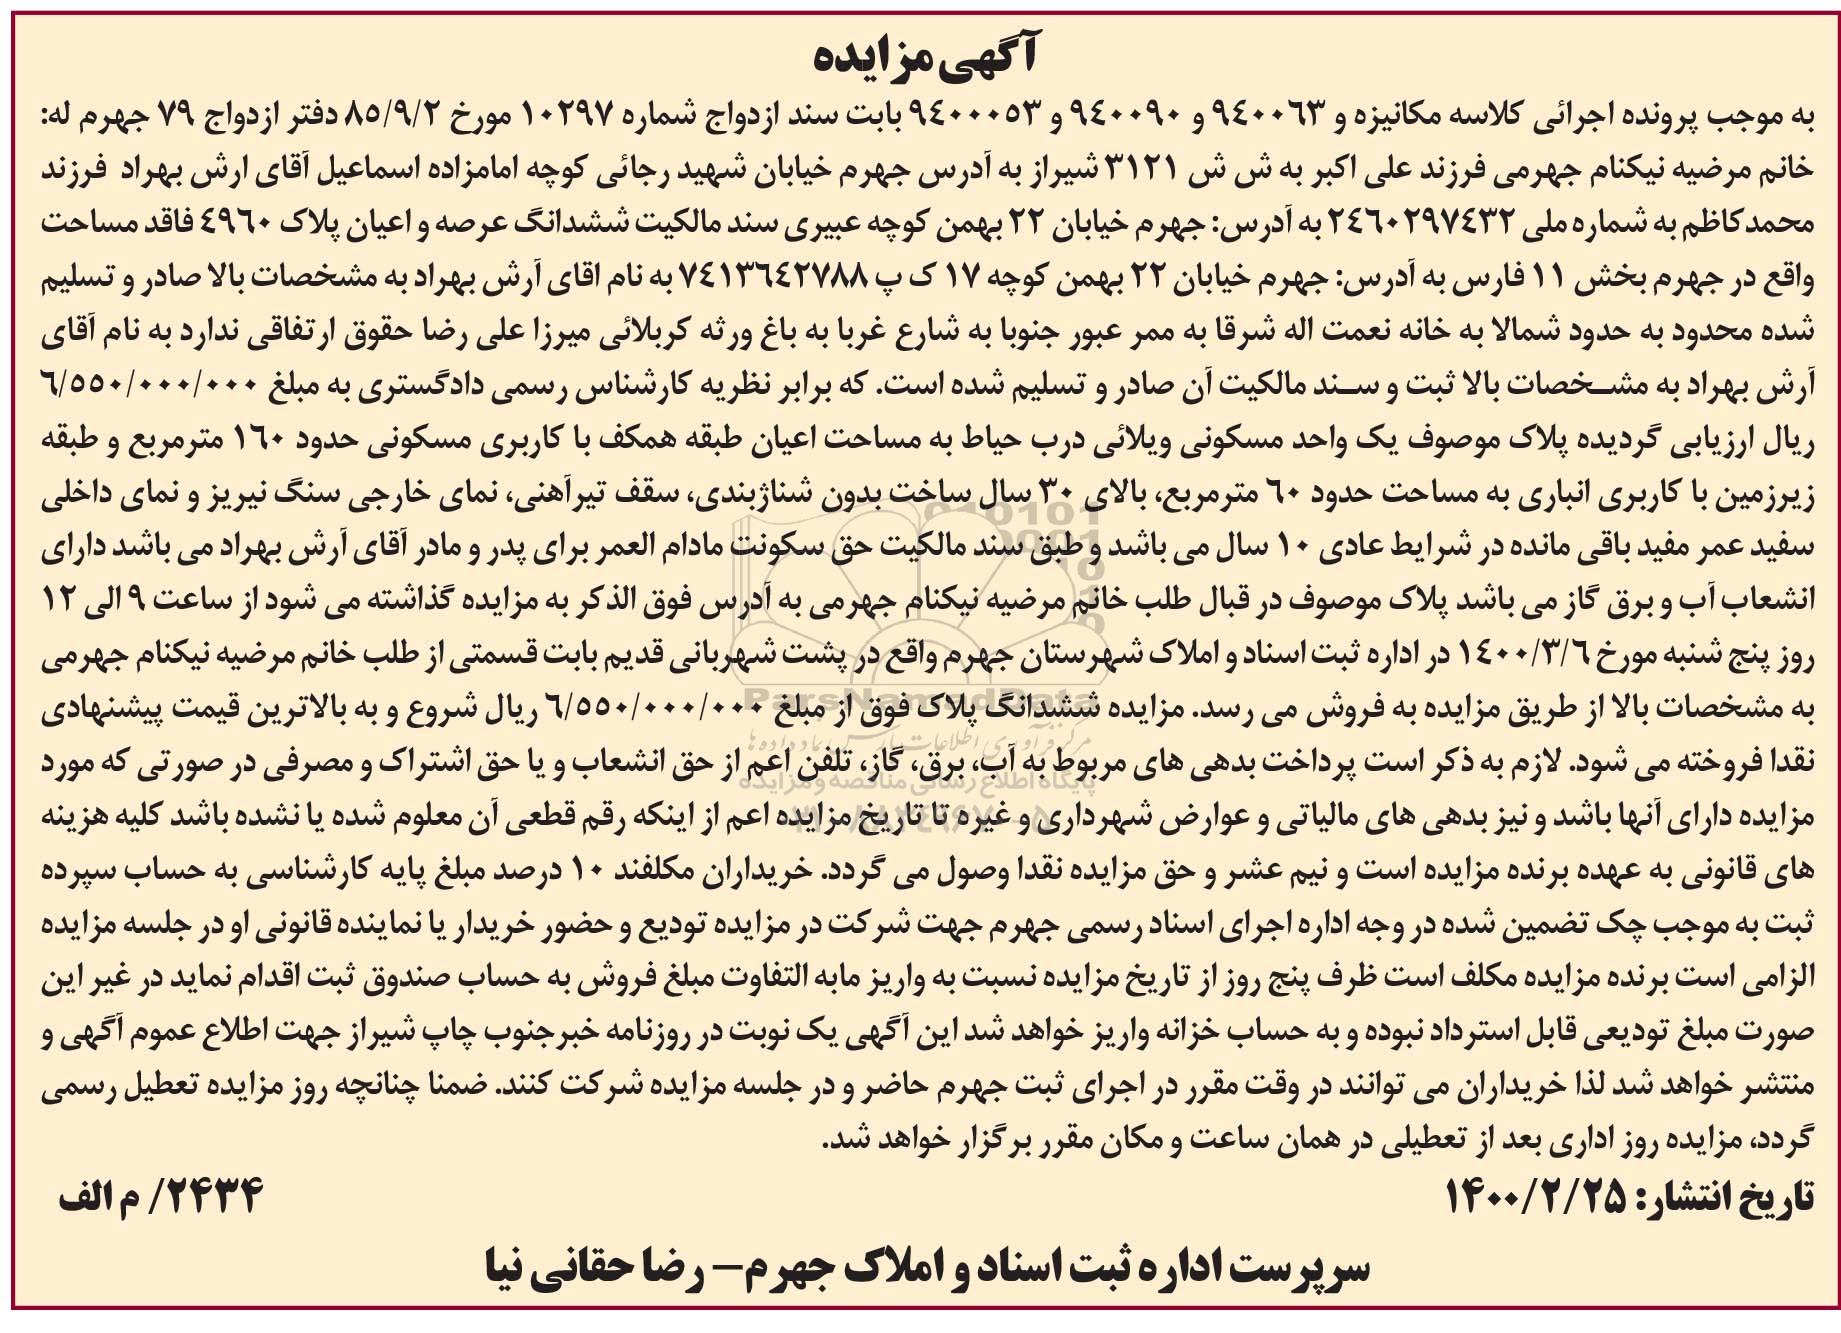 آگهی مزایده
به موجب پرونده اجرائی کلاسه مکانیزه و ۹۴۰۰۶۳ و ۹۴۰۰۹۰ و ۹۴۰۰۰۵۳ بابت سند ازدواج شماره ۱۰۲۹۷ مورخ ۸۵/۹/۲ دفتر ازدواج ۷۹ جهرم له:
خانم مرضیه نیکنام جهرمی فرزند علی اکبر به ش ش ۳۱۲۱ شیراز به آدرس جهرم خیابان شهید رجائی کوچه امامزاده اسماعیل آقای ارش بهراد فرزند
محمدکاظم به شماره ملی ۲۴۶۰۲۹۷۴۳۲ به آدرس: جهرم خیابان ۲۲ بهمن کوچه عبیری سند مالکیت ششدانگ عرصه و اعیان پلاک ۴۹۶۰ فاقد مساحت
واقع در جهرم بخش ۱۱ فارس به آدرس: جهرم خیابان ۲۲ بهمن کوچه ۱۷ ک پ ۷۴۱۳۶۴۲۷۸۸ به نام اقای آرش بهراد به مشخصات بالا صادر و تسلیم
شده محدود به حدود شمالا به خانه نعمت اله شرقا به ممر عبور جنوبا به شارع غربا به باغ ورثه کربلائی میرزا علی رضا حقوق ارتفاقی ندارد به نام آقای
آرش بهراد به مشخصات بالا ثبت و سند مالکیت آن صادر و تسلیم شده است. که برابر نظریه کارشناس رسمی دادگستری به مبلغ ۶/۵۵۰/۰۰۰/۰۰۰
ریال ارزیابی گردیده پلاک موصوف یک واحد مسکونی ویلائی درب حیاط به مساحت اعیان طبقه همکف با کاربری مسکونی حدود ۱۶۰ مترمربع و طبقه
زیرزمین با کاربری انباری به مساحت حدود ۶۰ مترمربع، بالای ۳۰ سال ساخت بدون شناژبندی، سقف تیرآهنی، نمای خارجی سنگ نیریز و نمای داخلی
سفید عمر مفید باقی مانده در شرایط عادی ۱۰ سال می باشد و طبق سند مالکیت حق سکونت مادام العمر برای پدر و مادر آقای آرش بهراد می باشد دارای
انشعاب آب و برق گاز می باشد پلاک موصوف در قبال طلب خانم مرضیه نیکنام جهرمی به آدرس فوق الذکر به مزایده گذاشته می شود از ساعت ۹ الی ۱۲
روز پنج شنبه مورخ ۱۴۰۰/۳/۶ در اداره ثبت اسناد و املاک شهرستان جهرم واقع در پشت شهربانی قدیم بابت قسمتی از طلب خانم مرضیه نیکنام جهرمی
به مشخصات بالا از طریق مزایده به فروش می رسد. مزایده ششدانگ پلاک فوق از مبلغ ۶/۵۵۰/۰۰۰/۰۰۰ ریال شروع و به بالاترین قیمت پیشنهادی
نقدا فروخته می شود. لازم به ذکر است پرداخت بدهی های مربوط به آب، برق، گاز، تلفن اعم از حق انشعاب و یا حق اشتراک و مصرفی در صورتی که مورد
مزایده دارای آنها باشد و نیز بدهی های مالیاتی و عوارض شهرداری و غیره تا تاریخ مزایده اعم از اینکه رقم قطعی آن معلوم شده یا نشده باشد کلیه هزینه
های قانونی به عهده برنده مزایده است و نیم عشر و حق مزایده نقدا وصول می گردد. خریداران مکلفند ۱۰ درصد مبلغ پایه کارشناسی به حساب سپرده
ثبت به موجب چک تضمین شده در وجه اداره اجرای اسناد رسمی جهرم جهت شرکت در مزایده تودیع و حضور خریدار یا نماینده قانونی او در جلسه مزایده
الزامی است برنده مزایده مکلف است ظرف پنج روز از تاریخ مزایده نسبت به واریز مابه التفاوت مبلغ فروش به حساب صندوق ثبت اقدام نماید در غیر این
صورت مبلغ تودیعی قابل استرداد نبوده و به حساب خزانه واریز خواهد شد این آگهی یک نوبت در روزنامه خبرجنوب چاپ شیراز جهت اطلاع عموم آگهی و
منتشر خواهد شد لذا خریداران می توانند در وقت مقرر در اجرای ثبت جهرم حاضر و در جلسه مزایده شرکت کنند. ضمنا چنانچه روز مزایده تعطیل رسمی
گردد، مزایده روز اداری بعد از تعطیلی در همان ساعت و مکان مقرر برگزار خواهد شد.
تاریخ انتشار: ۱۴۰۰/۲/۲۵ ۲۴۳۴/ م الف
سرپرست اداره ثبت اسناد و املاک جهرم– رضا حقانی نیا
ParsNamadData
پایگاه اطلاع رسانی مناقصه و مزایده